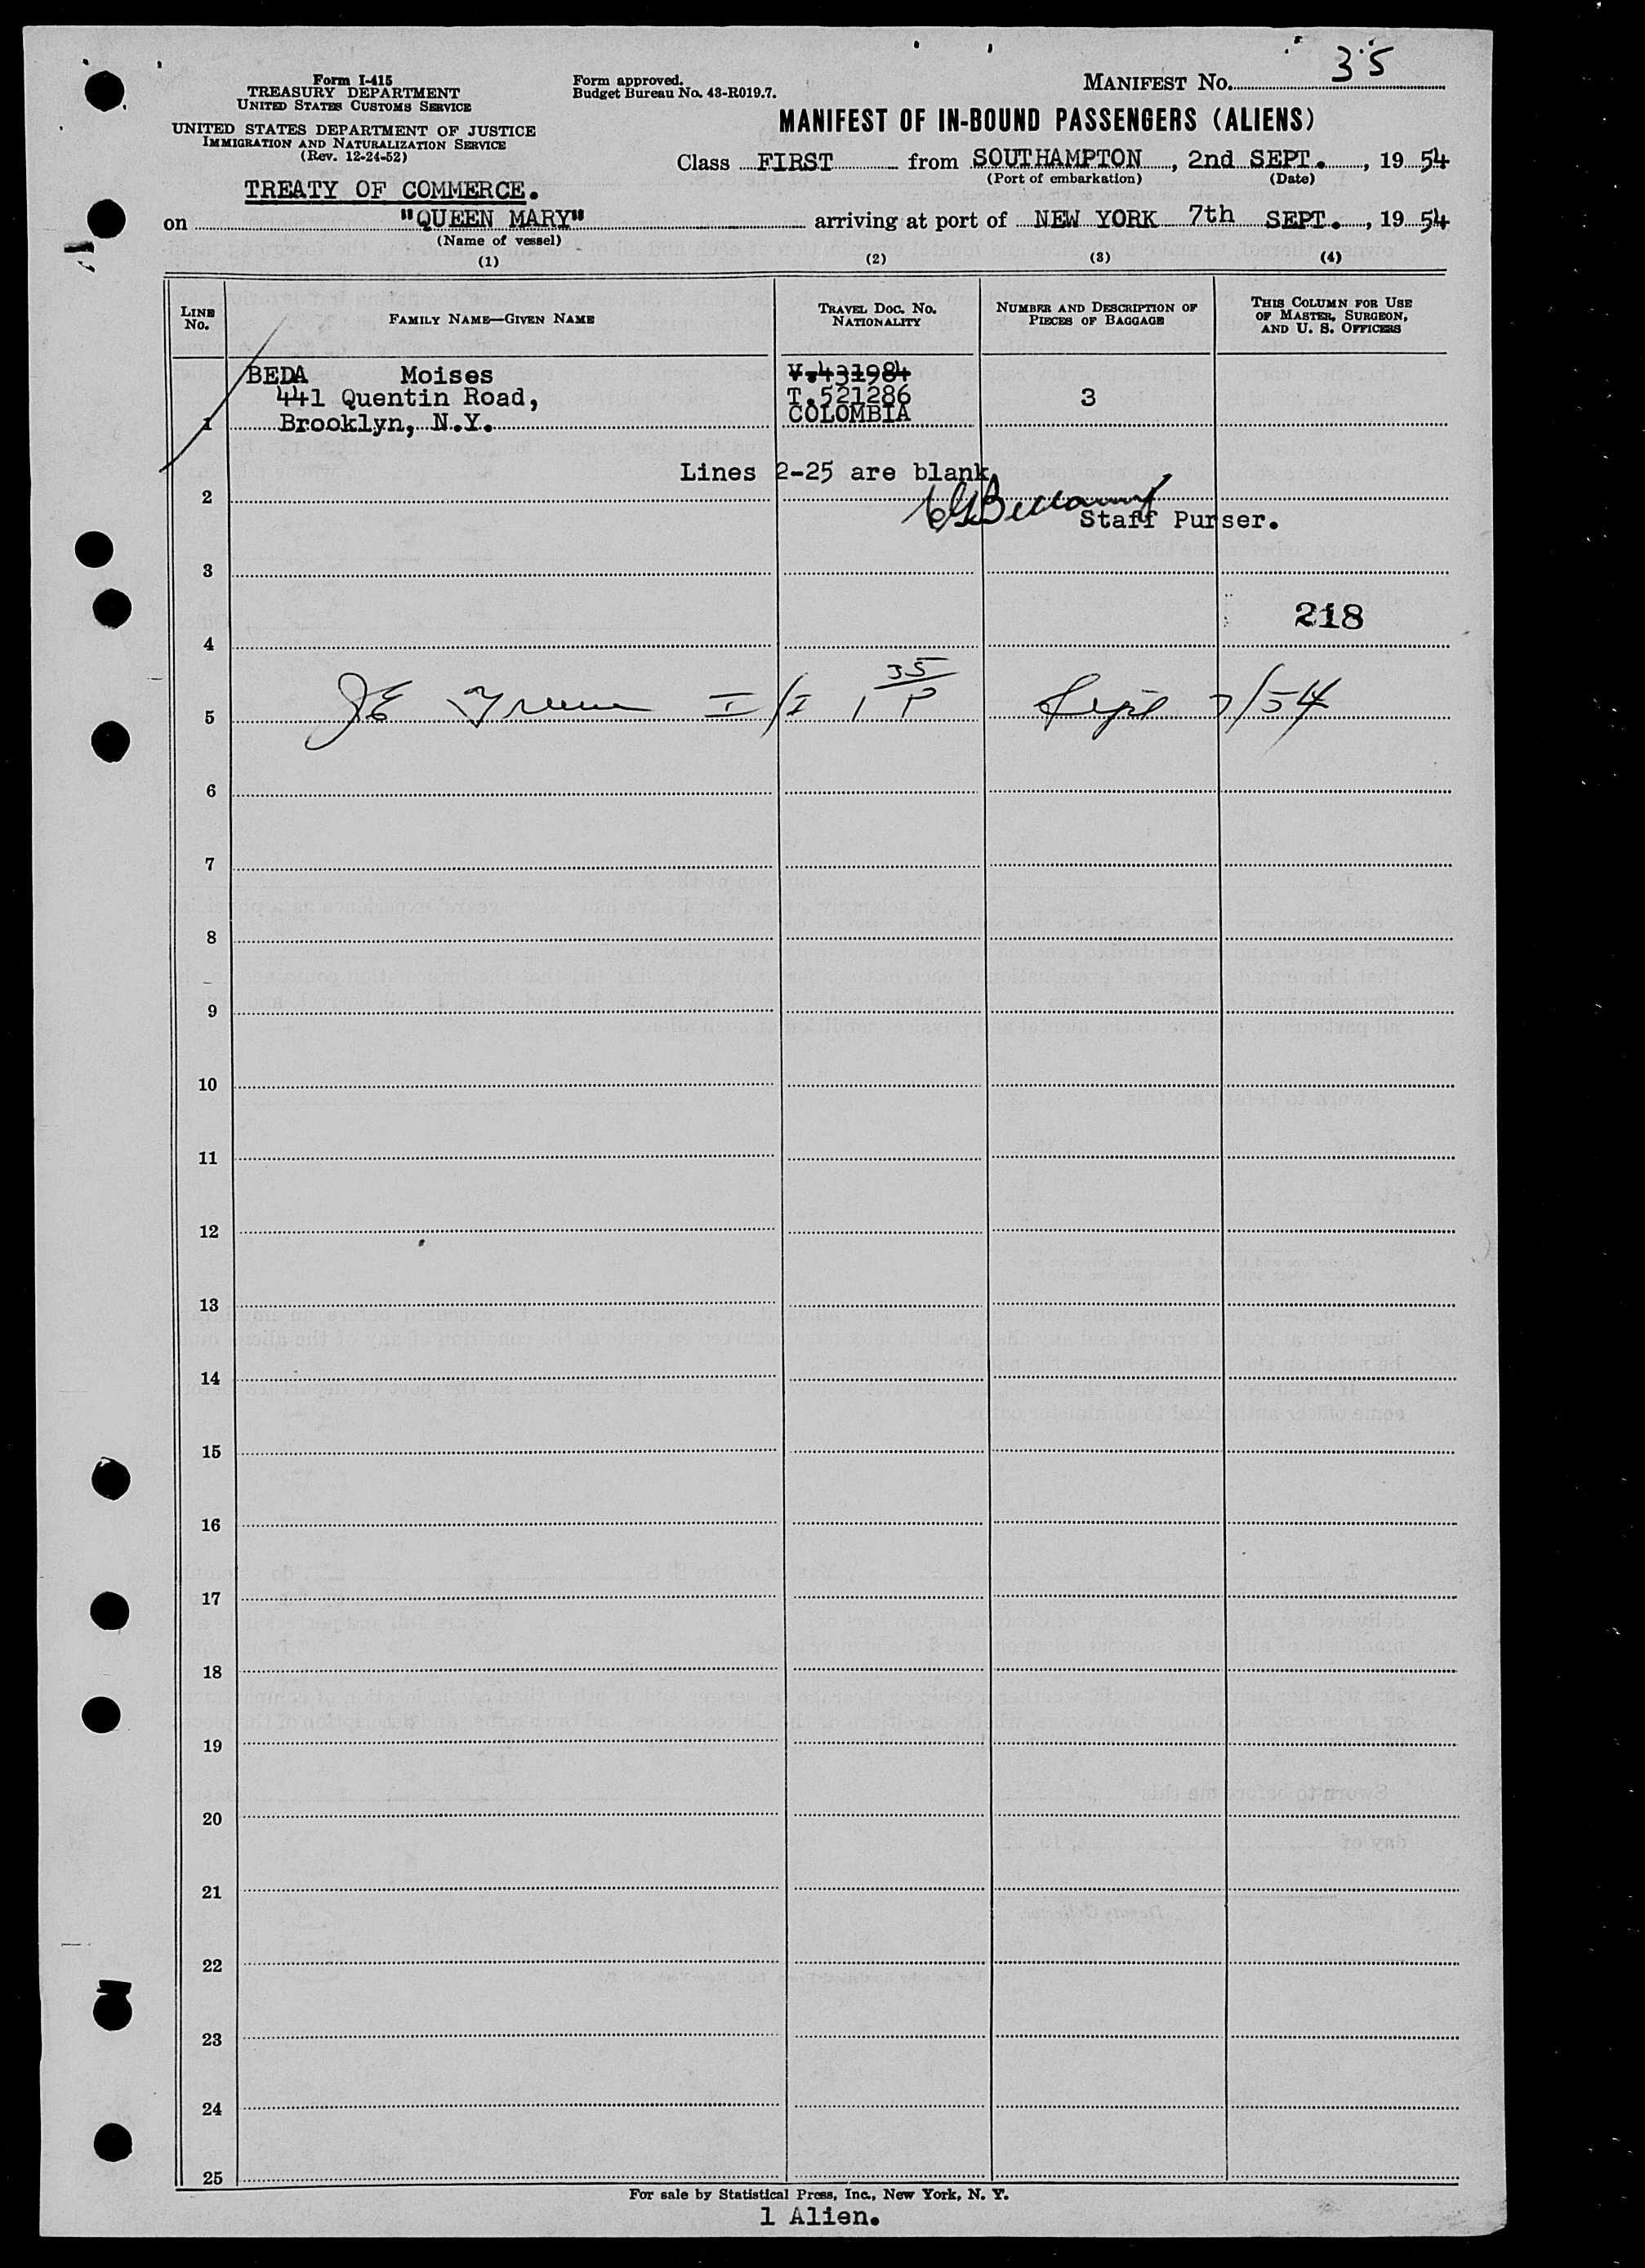 Form I-415
TREASURY DEPARTMENT
UNITED STATES CUSTOMS SERVICE
UNITED STATES DEPARTMENT OF JUSTICE
IMMIGRATION AND NATURALIZATION SERVICE
(Rev. 12-24-52)
Form approved.
Budget Bureau No. 43-R019.7.
MANIFEST No. 35
MANIFEST OF IN-BOUND PASSENGERS (ALIENS)
Class FIRST from SOUTHAMPTON, 2nd SEPT., 19 54
(Port of embarkation) (Date)
TREATY OF COMMERCE.
on "QUEEN MARY" arriving at port of NEW YORK 7th SEPT., 19 54
(Name of vessel)
(1) (2) (3) (4)
LINE No. FAMILY NAME—GIVEN NAME TRAVEL DOC. No. NATIONALITY NUMBER AND DESCRIPTION OF PIECES OF BAGGAGE THIS COLUMN FOR USE OF MASTER, SURGEON, AND U. S. OFFICERS
BEDA Moises V.431984
441 Quentin Road, T.521286 3
1 Brooklyn, N.Y. COLOMBIA
Lines 2-25 are blank
2
Staff Purser.
3
218
4
35
5 I/I 1 P Sept 7/54
6
7
8
9
10
11
12
13
14
15
16
17
18
19
20
21
22
23
24
25
For sale by Statistical Press, Inc., New York, N. Y.
1 Alien.